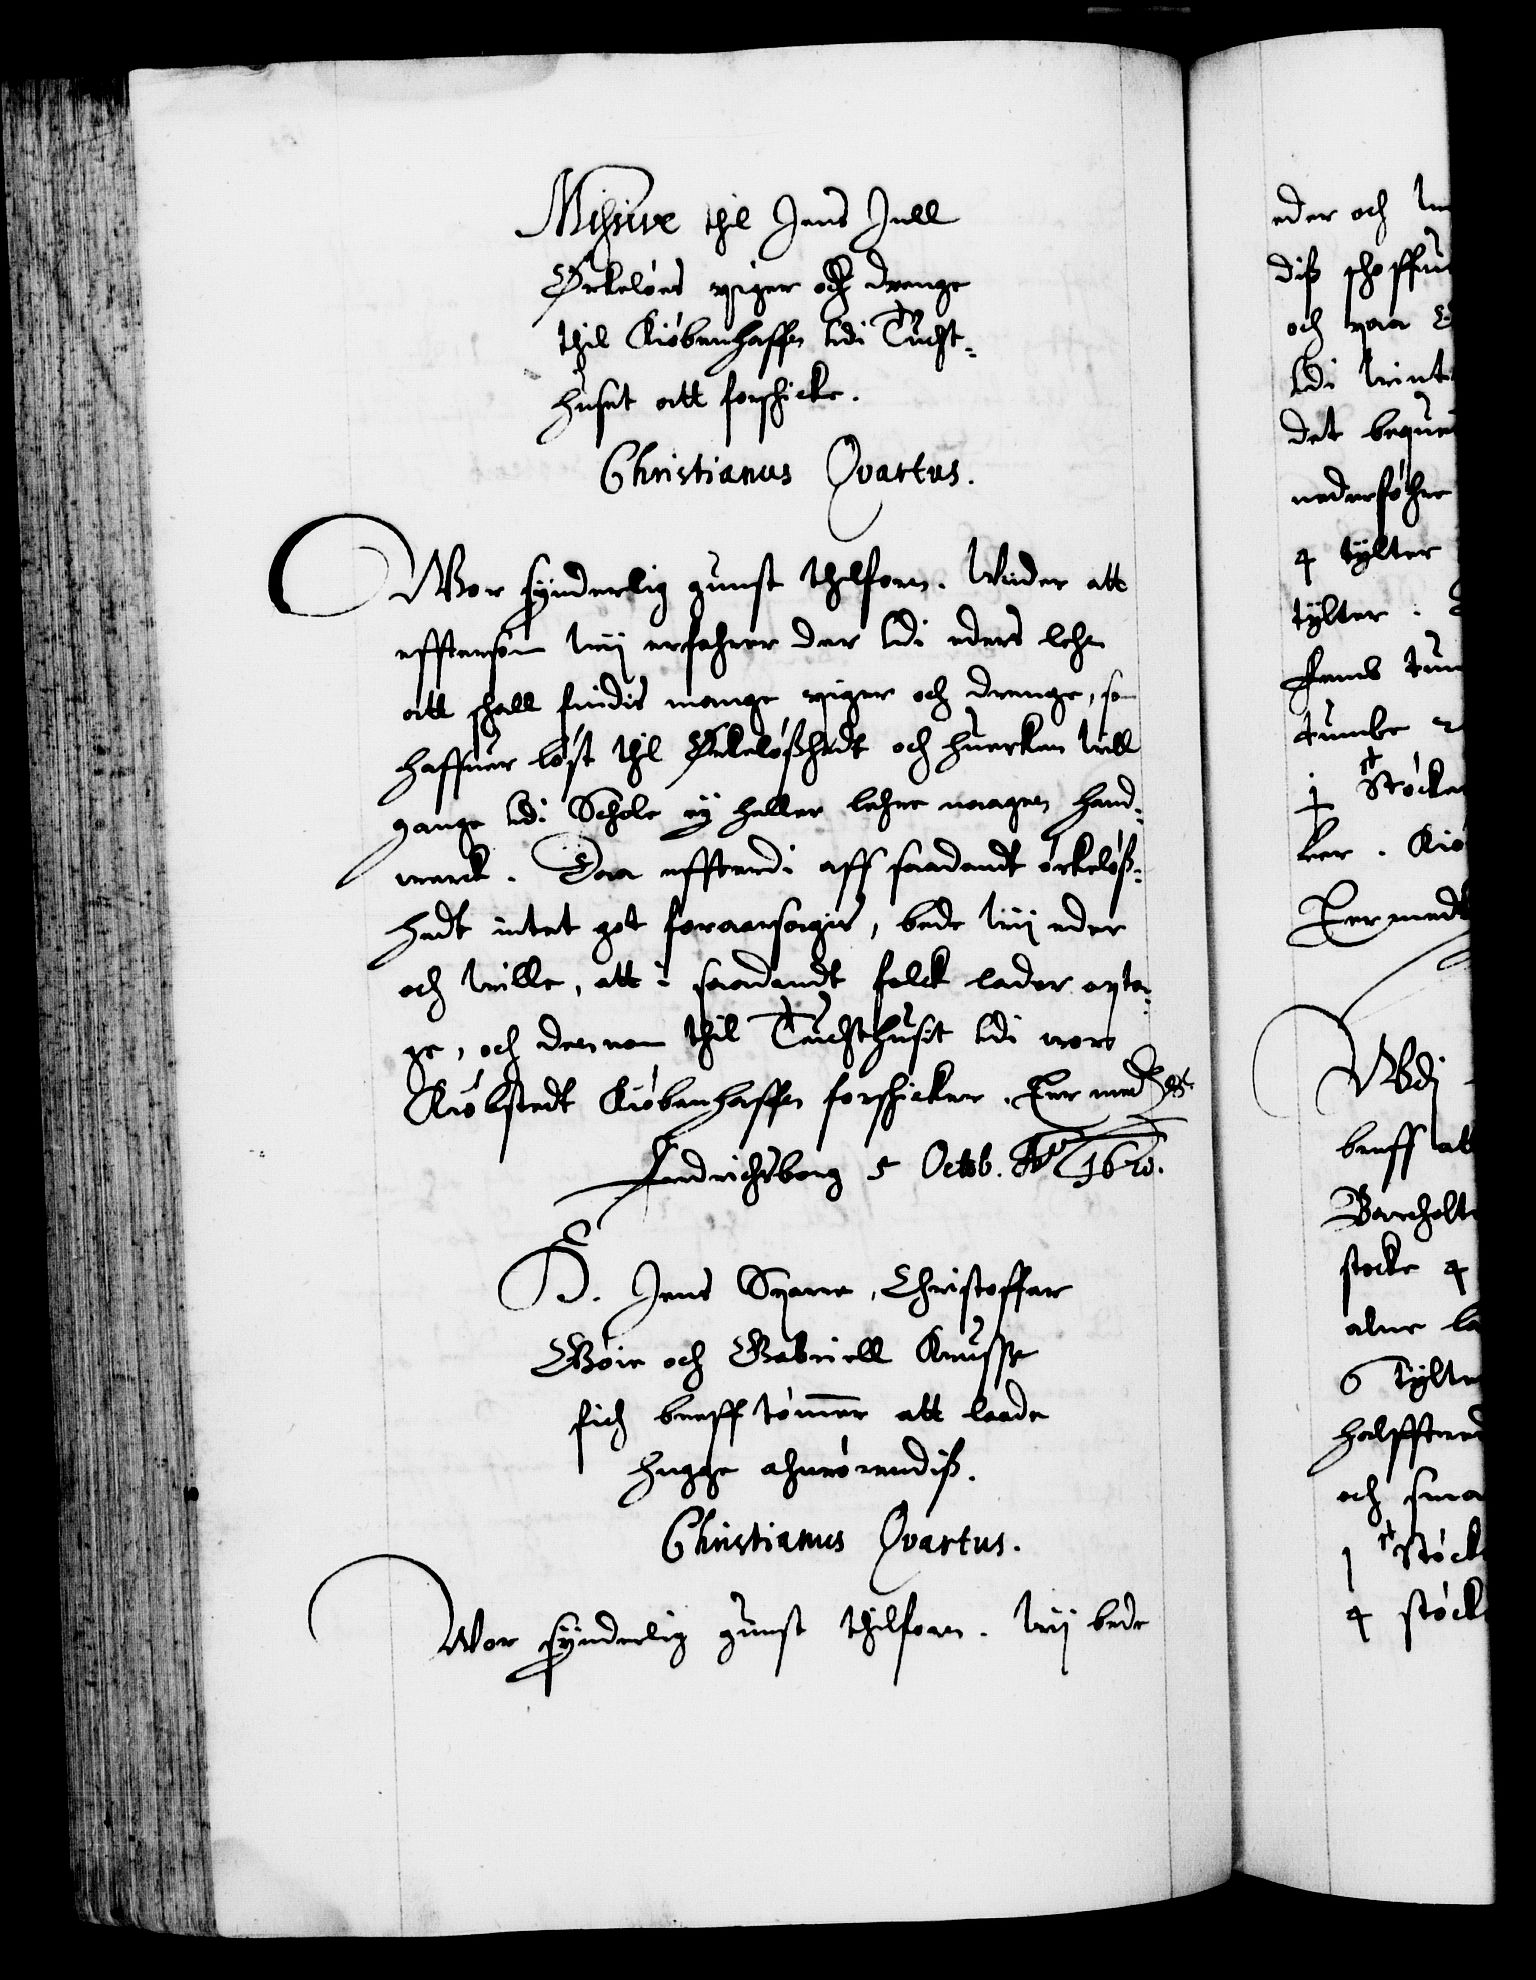 Missive thil Jens Juell
Ørkeløes piger och drenge
thil Kiøbenhaffn udi Tucht-
huset att forschicke.
Christianus Qvartus.
Wor synderlig gunst thilforn. Wider att
effterson wij erfahrer der udi eders lehn
att schall findis mange piger och drenge, som
haffuer løst thil Ørkeløshedt och huercken will
gange udi Schole ey heller lehre naagen hand-
werck. Daa effterdi aff saadandt ørkeløs-
hedt intet got foraarsagis, bede wij eder
och wille, att i saadandt folck lader opta-
ge, och dennom thil Tuchthusit udi wor
Kiøbstedt Kiøbenhaffn forschicker. Der med
Fredrichsborg 5 Octob. Ao 1620.
D. Jens Sparre, Christoffer
Gøie och Gabriell Knusse
fich breff tømmer att laade
hugge anrørendis.
Christianus Qvartus.
Wor synderlig gunst thilforn. Wij bede
eder och
dis
och paa
udi
det
nederføhre
4 tylter
tylter
Femb
tumbe
1 Støcke
ker. Kiø
Der medt
Wdj
breff att
stocke 4
alne
6 Tylter
och sma
1 Støck
4 støck